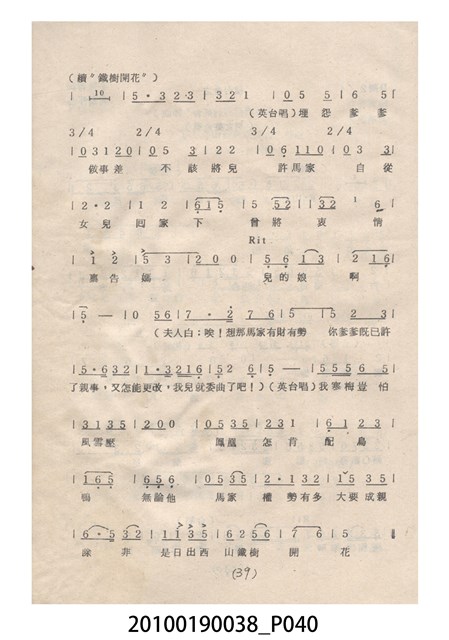 (續〝鐵樹開花〞)
| 10 | 5 · 3 2·3 | 3 2 1 | 0 5 5 | 6 5
(英台唱)埋怨爹爹
3/4 2/4 3/4 2/4
| 0 3 1 2 0 | 0 5 3 | 5 2 2 | 0 6 1 1 0 | 0 3 3 |
做事差 不該將兒 許馬家 自從
| 2 · 2 | 1 2 | 2 | 6 1 5 | 5 5 2 | 3 2 1 6 |
女兒回家下 曾將衷情
Rit
| 1 2 | 5 3 | 2 0 0 | 5 6 1 3 | 2 2 1 6 |
稟告娘 兒的娘啊
| 5 — | 0 5 6 | 7 · 2 | 7 6 | 5 | 5 2 3 |
(夫人白:唉!想那馬家有財有勢 你爹爹既已許
| 5 · 6 3 2 | 1 · 3 2 1 6 | 5 2 | 6 2 | 5 — | 5 5 5 0 |
了親事,又怎能更改,我兒就委曲了吧!)(英台唱)我寒梅豈怕
| 3 1 3 5 | 2 0 0 | 5 5 3 | 2 5 | 6 1 2 3 |
風雪壓 鳳凰怎肯配烏
| 1 6 5 | 6 5 6 | 0 5 3 5 | 2 · 1 3 2 | 1 5 3 5 |
鴉 無論他 馬家 權勢有多大要成親
| 6 · 5 3 2 | 1 1 3 5 | 6 2 5 6 | 7 6 | 5 ‖
除非 是日出西山鐵樹 開花
(39)
20100190038_P040